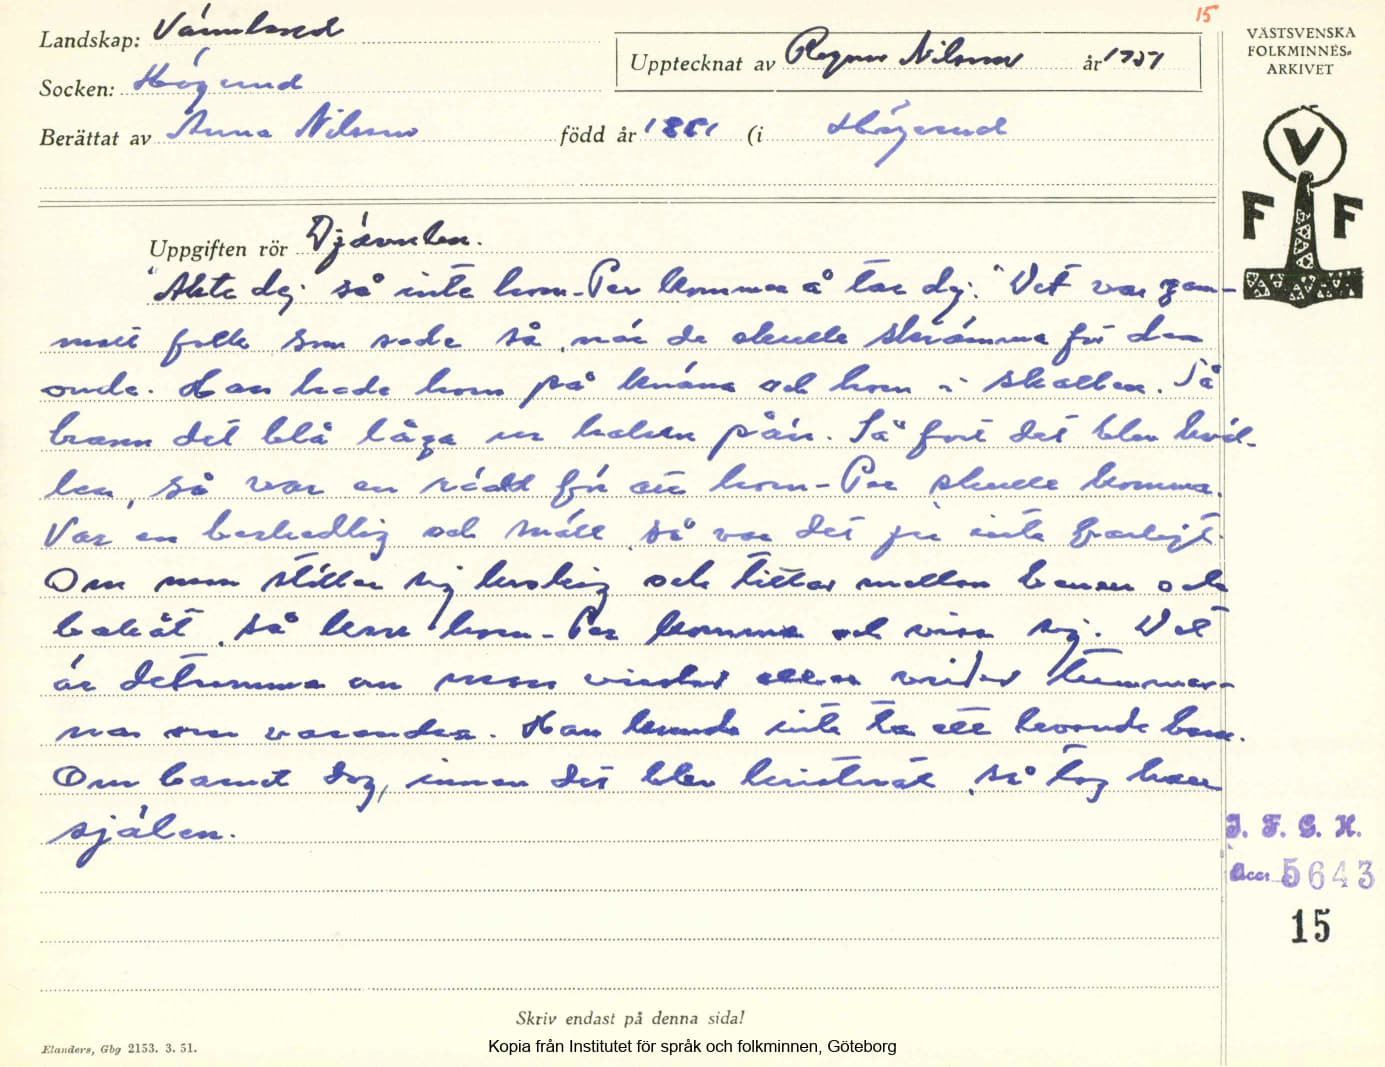 15
Landskap: Värmland
Upptecknat av Ragnar Nilsson år 1951
VÄSTSVENSKA
FOLKMINNES-
ARKIVET
Socken: Högerud
Berättat av Anna Nilsson född år 1881 (i Högerud
V
F F
Uppgiften rör Djävulen.
"Akta dej så inte horn-Per kommer å tar dej." Det var gam-
malt folk som sade så, när de skulle skrämma för den
onde. Han hade horn på knäna och horn i skallen. Så
brann det blå låga ur halsen på'n. Så fort det blev kväl-
len, så var en rädd för att horn-Per skulle komma.
Var en beskedlig och snäll, så var det ju inte farligt.
Om man ställer sig kroking och tittar mellan benen och
bakåt, så kan horn-Per komma och visa sig. Det
är detsamma om man vindar eller vrider tummar-
na om varandra. Han kunde inte ta ett levande barn.
Om barnet dog, innan det blev kristnat, så tog han
själen.
I. F. G. H.
Acc. 5643
15
Skriv endast på denna sida!
Elanders, Gbg 2153. 3. 51.
Kopia från Institutet för språk och folkminnen, Göteborg